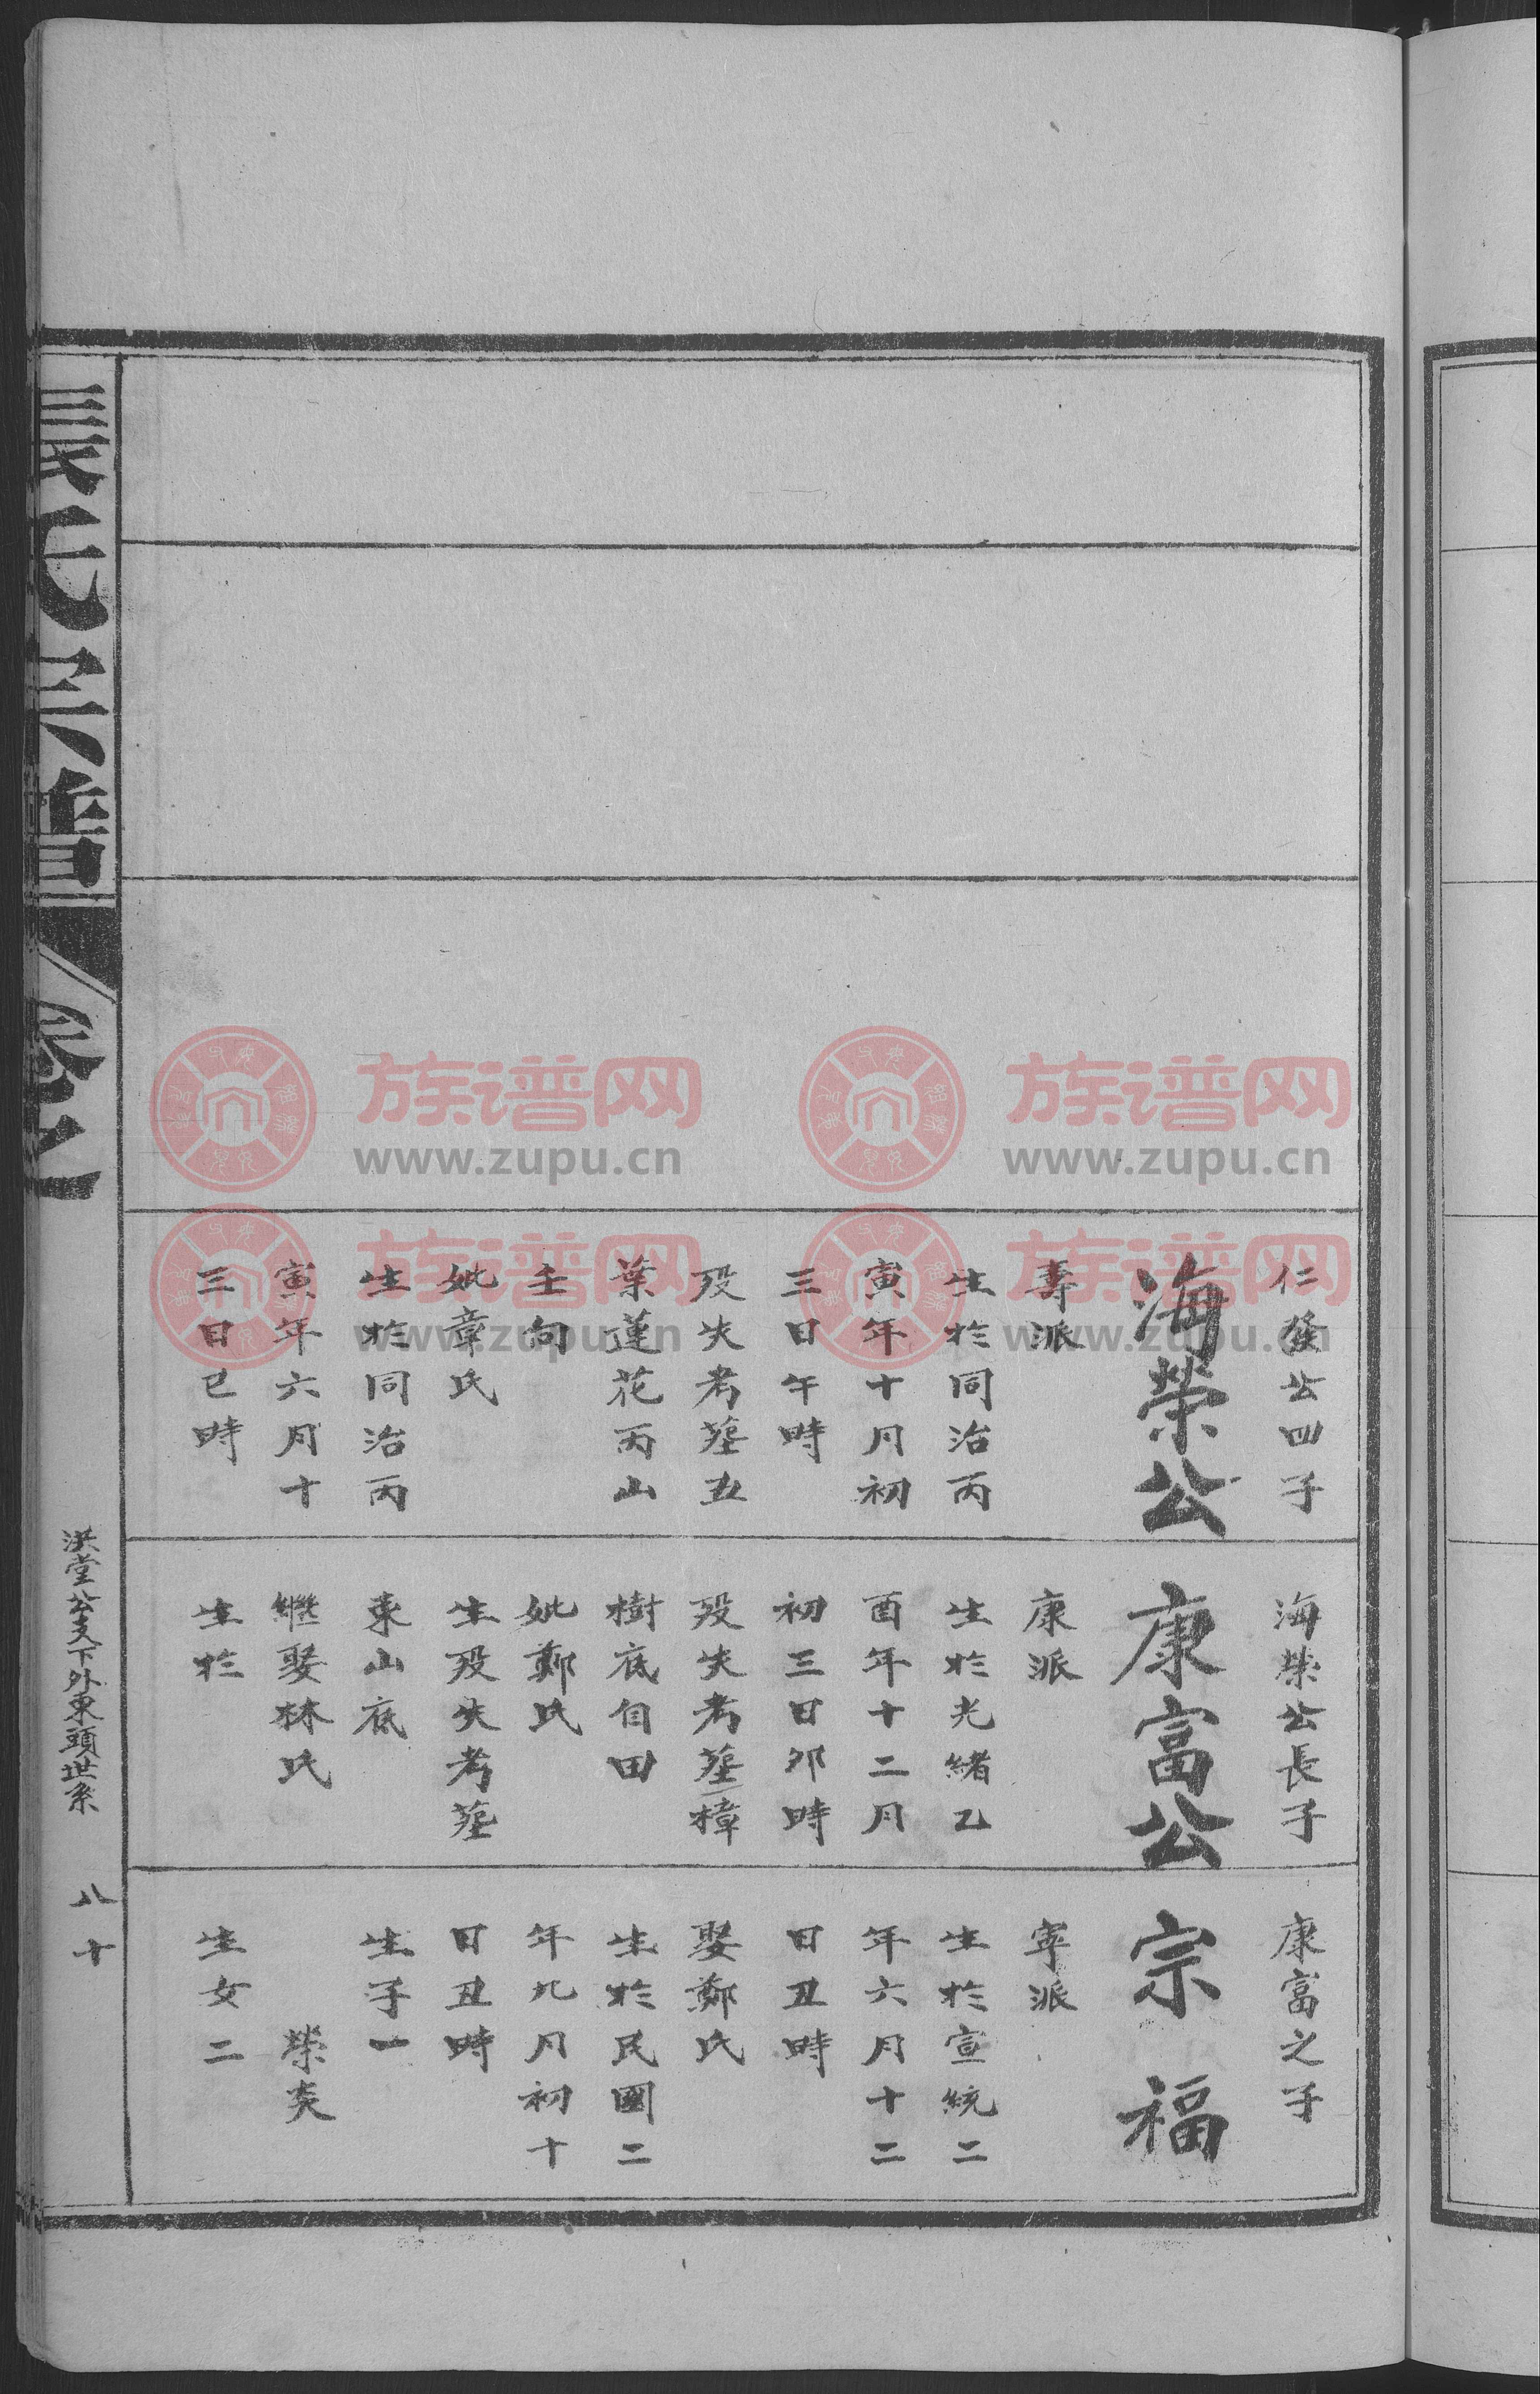 仁發公四子
海榮公
壽派
生於同治丙
寅年十月初
三日午時
歿失考墓五
葉蓮花丙山
壬向
妣章氏
生於同治丙
寅年六月十
三日巳時
海榮公長子
康富公
康派
生於光緒乙
酉年十二月
初三日卯時
歿失考墓樟
樹底自田
妣鄭氏
生歿失考墓
東山底
繼娶林氏
生於
康富之子
宗福
寧派
生於宣統二
年六月十二
日丑時
娶鄭氏
生於民國二
年九月初十
日丑時
生子一
榮炎
生女二
氏宗譜
卷
洪堂公支下外東頭世系
八十
族谱网
www.zupu.cn
族谱网
www.zupu.cn
族谱网
www.zupu.cn
族谱网
www.zupu.cn